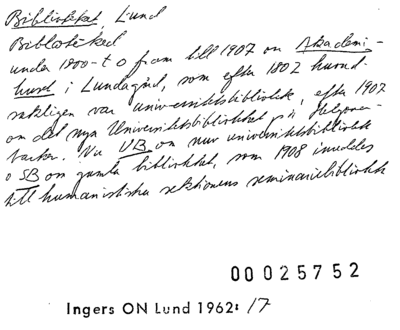 Biblioteket, Lund
Biblioteket
under 1800-t o fram till 1907 om Akademi-
huset i Lundagård, som efter 1802 huvud-
sakligen var universitetsbibliotek, efter 1907
om det nya Universitetsbiblioteket på Helgona-
backen. Nu UB om nuv universitetsbibliotek
o SB om gamla biblioteket, som 1908 inreddes
till humanistiska sektionens seminariebibliotek
00025752
Ingers ON Lund 1962: 17